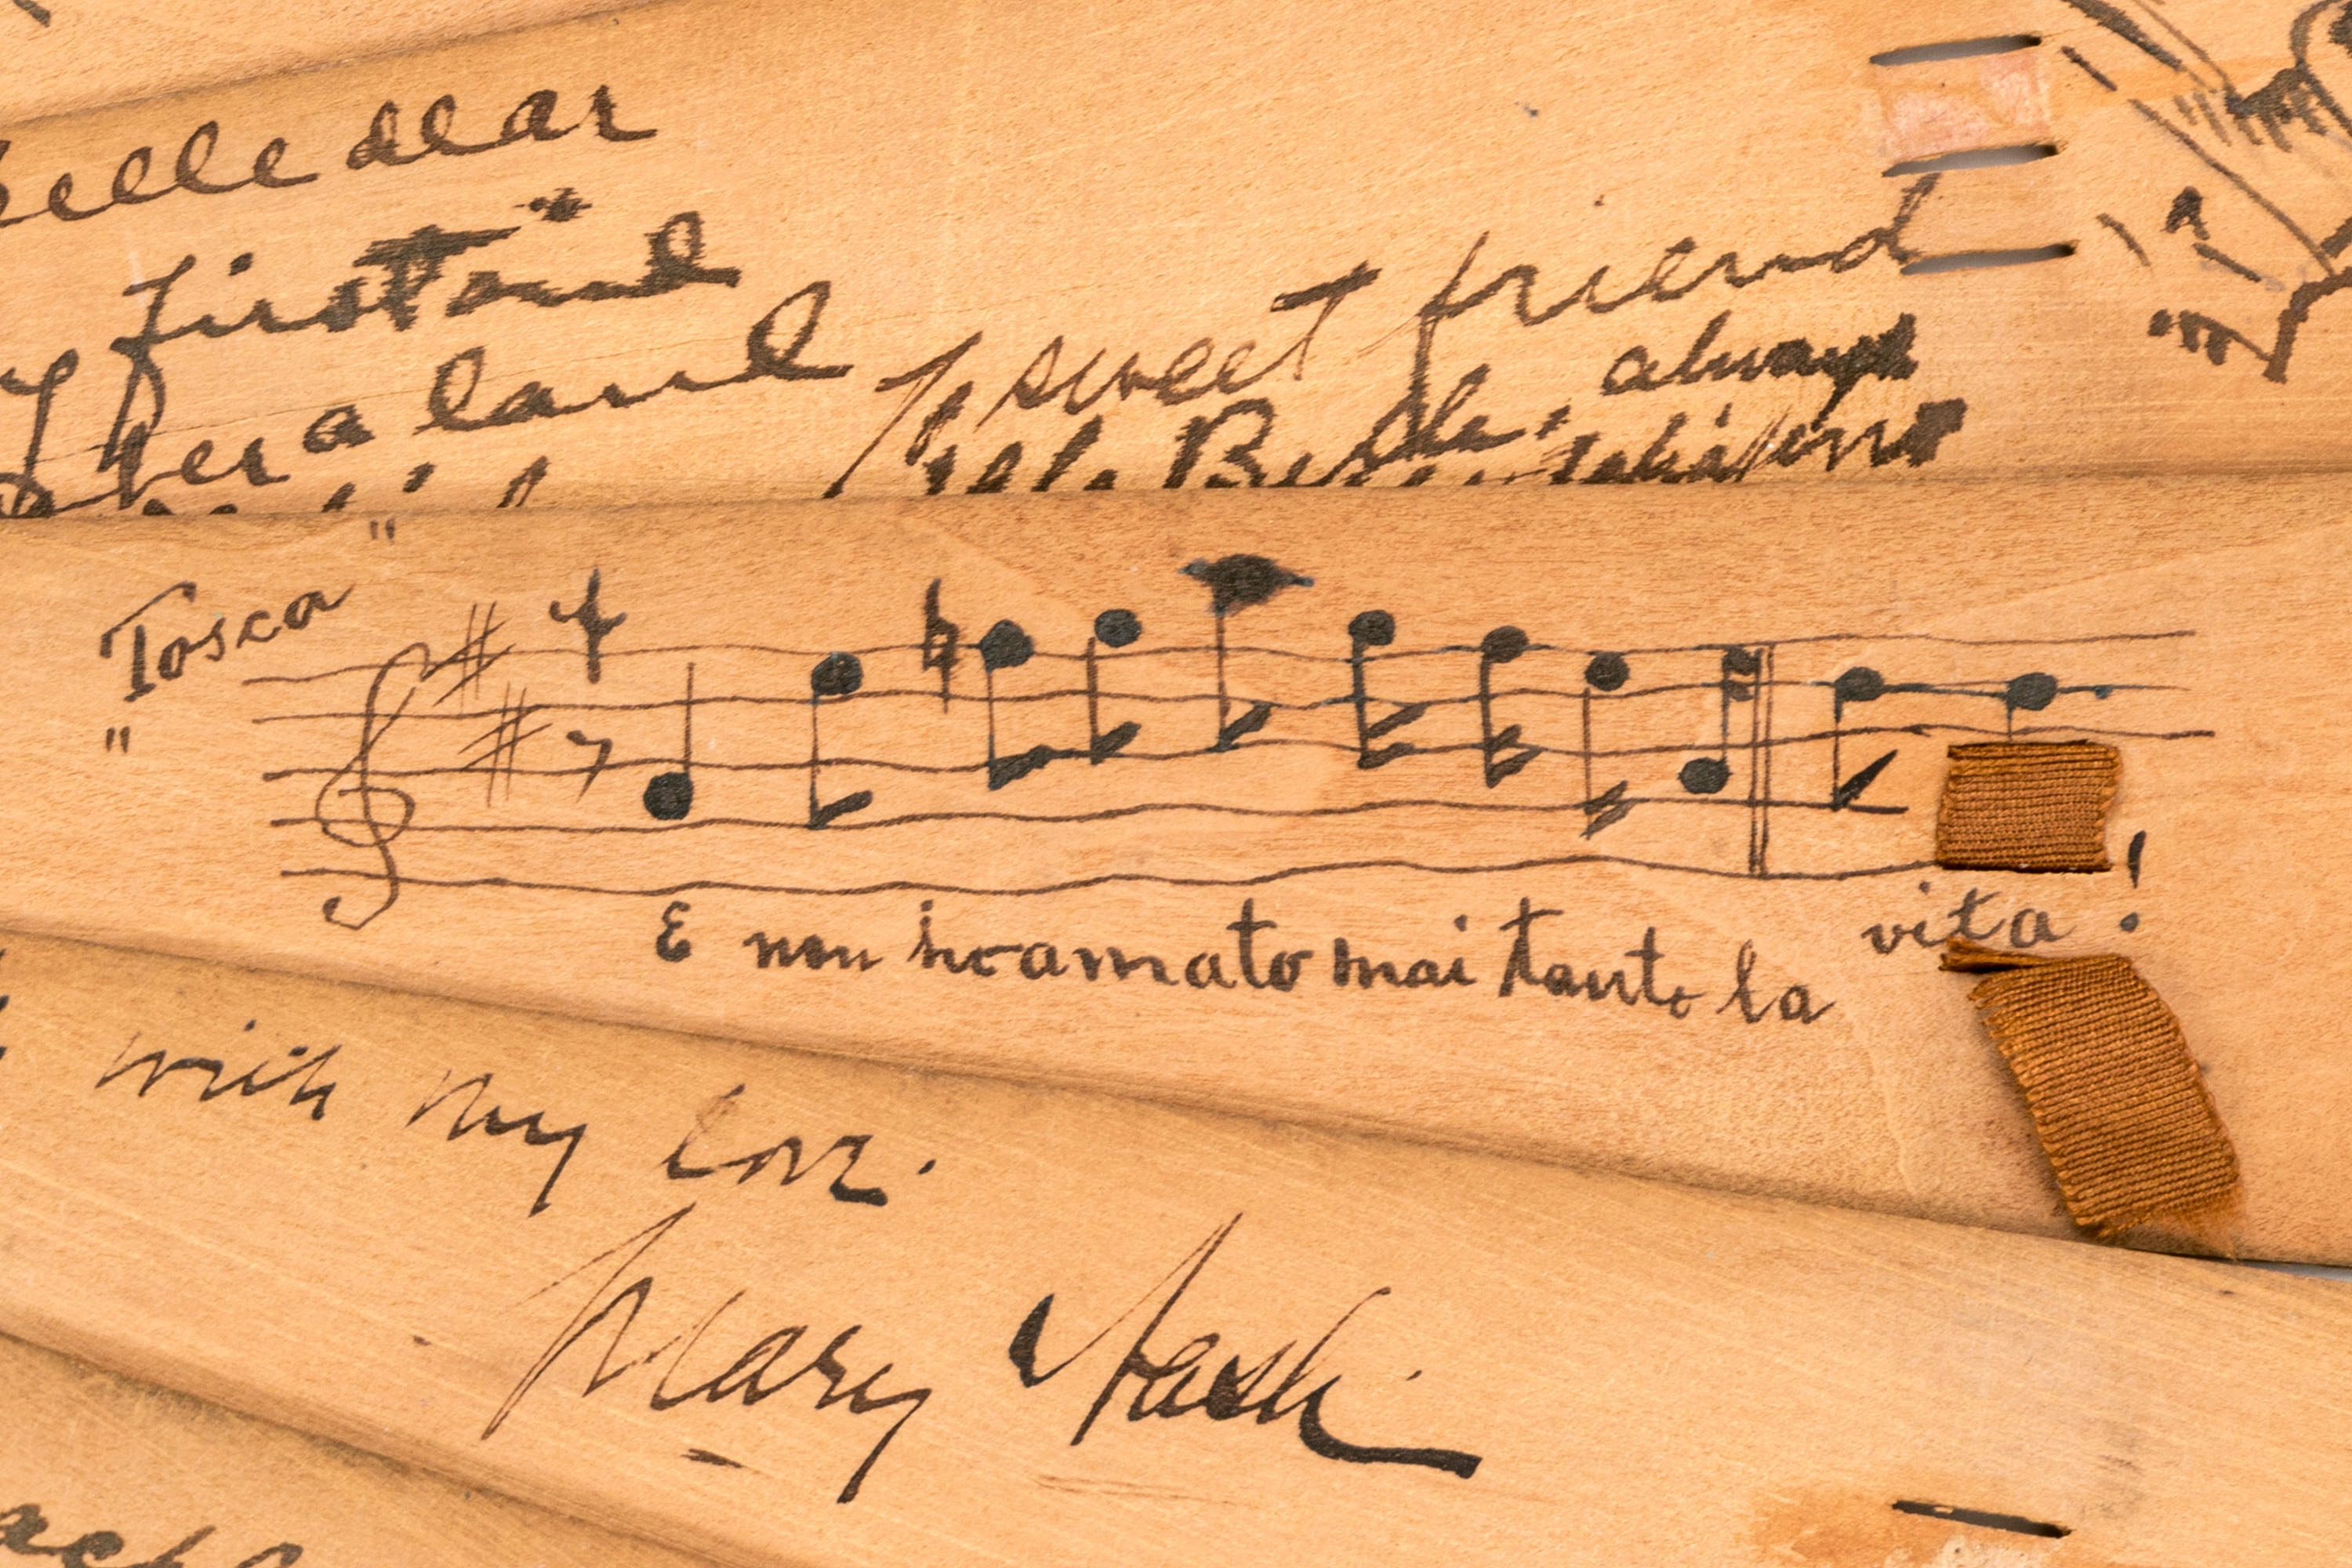 elle dear
first and
a land
To sweet friend
Belle, always
"Tosca"
E non ho amato mai tanto la vita!
with my love.
Mary Nash